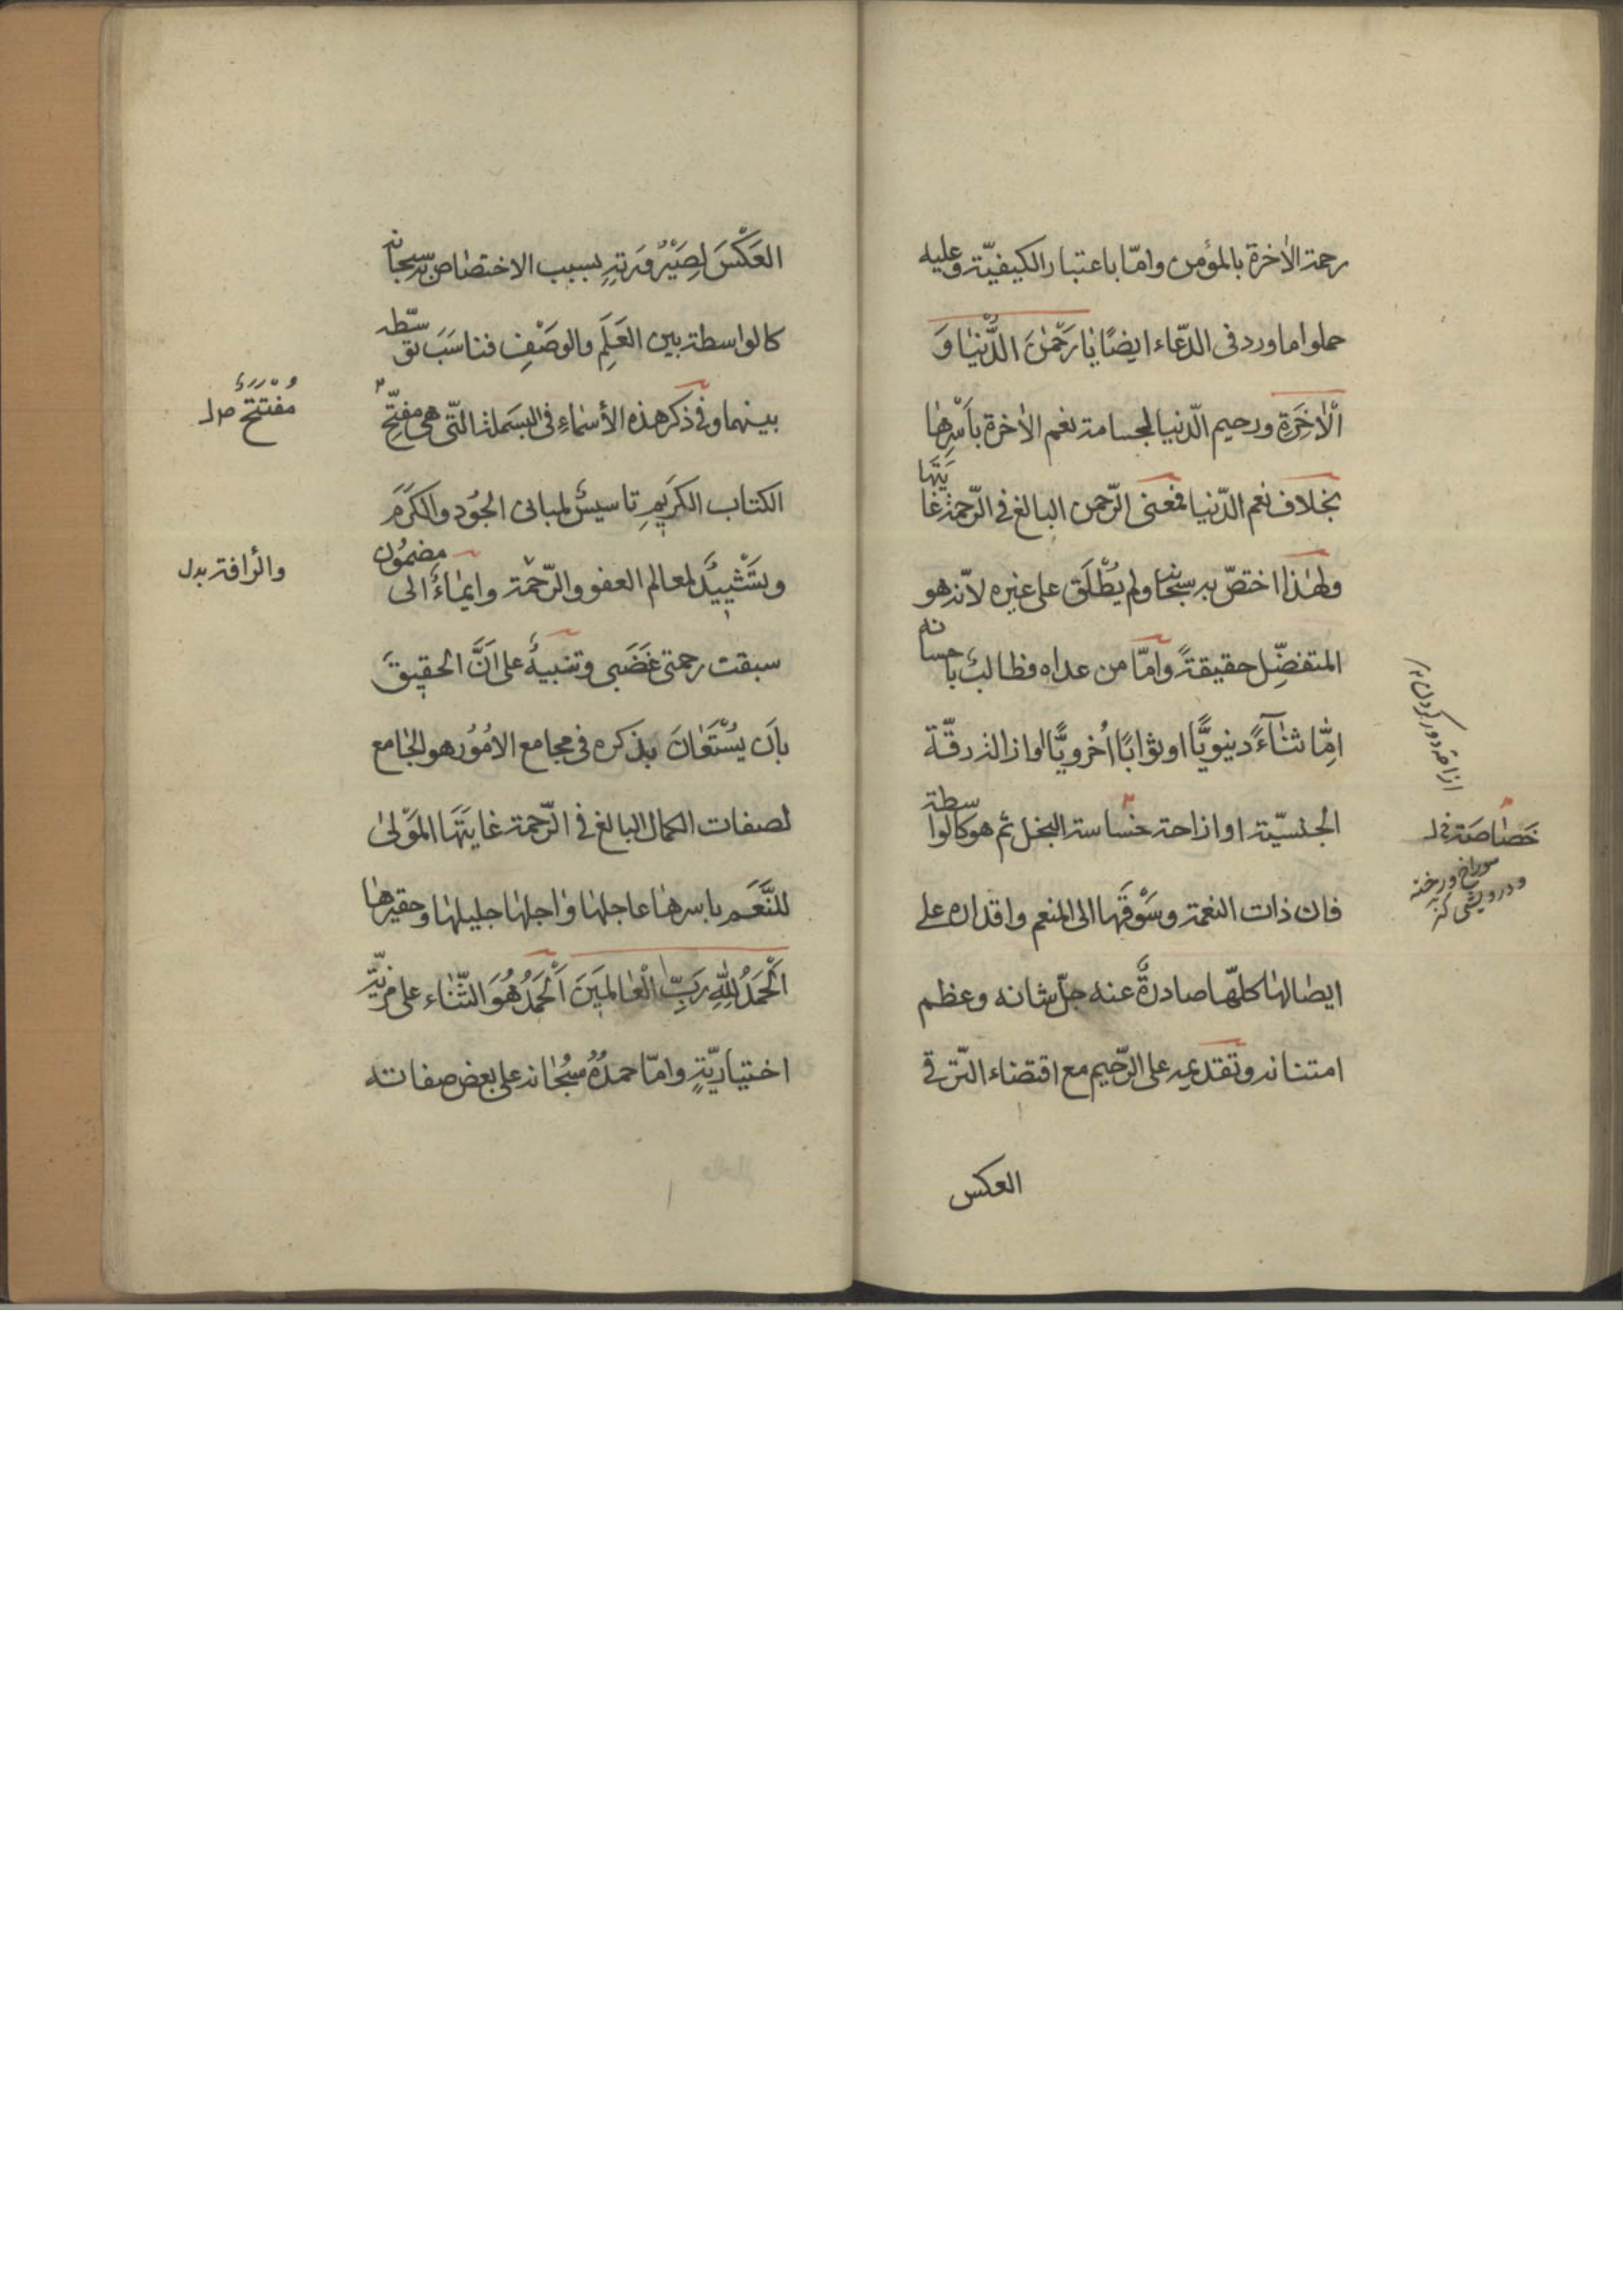 رحمة الاخرة بالمؤمن وامّا باعتبار الكيفيّة وعليه
حملوا ما ورد فى الدّعاء ايضًا يا رَحْمٰنَ الدُّنْيٰا وَ
الْاٰخِرَةِ ورحيم الدّنيا لجسامة نعم الاٰخرة بِاَسْرِهٰا
بخلاف نعم الدّنيا فمعنى الرّحمن البالغ فى الرّحمة غايَتَها
ولهٰذا اختصّ به سبحانه ولم يُطْلَق على غيره لانّه هو
المتفضّل حقيقةً وامّا من عداه فطالبٌ باحسانه
اِمّٰا ثنٰآءً دنيويًّا او ثوابًا اُخرويًّا او ازالة رقّة
الجنسيّة او ازاحة خساسة البخل ثم هو كالواسطة
فان ذات النعمة وسَوْقَها الى المنعم واقداره على
ايصالها كلّها صادرةٌ عنه جلّ شانه وعظم
امتنانه وتقديمه على الرّحيم مع اقتضاء التّرقى
العكس
ازاحة دور كردن
خَصاصَة
سوراخ ورخنه
ودرويشى كنز
العَكْسَ لِصَيْرُورَتِهِ بسبب الاختصاص به سبحانه
كالواسطة بين العَلَمِ والوَصْفِ فناسَبَ توسّطه
بينهما وفى ذكر هذه الأسماءِ فى البسملة التّى هى مفتّح
الكتاب الكَريمِ تاسيسٌ لمبانى الجُود والكَرَمِ
وتَشْييدٌ لمعالم العفو والرّحمة وايمٰاءٌ الى مضمُون
سبقت رحمتى غَضَبى وتنبيهٌ على اَنَّ الحقيقَ
باَن يُسْتَعٰانَ بذكره فى مجامع الامُوُر هو الجٰامع
لصفات الكمال البالغ فى الرّحمة غايَتَها المَوْلىٰ
للنَّعَم باسرهٰا عاجلهٰا واٰجلهٰا جليلهٰا وحقيرهٰا
اَلْحَمْدُ لِلّٰهِ رَبِّ الْعٰالَمينَ اَلْحَمْدُ هُوَ الثّنٰاء على مزيّة
اختياريّةٍ وامّا حمدُهُ سُبْحٰانه على بعض صفاته
مُفْتَتَحُ صل
والرّافة بدل